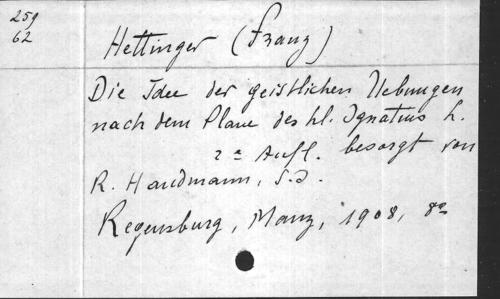 259
62
Hettinger (Franz)
Die Idee der geistlichen Uebungen
nach dem Plane des hl. Ignatius h.
2e Aufl. besorgt von
R. Handmann, S.J.
Regensburg, Manz, 1908, 8º